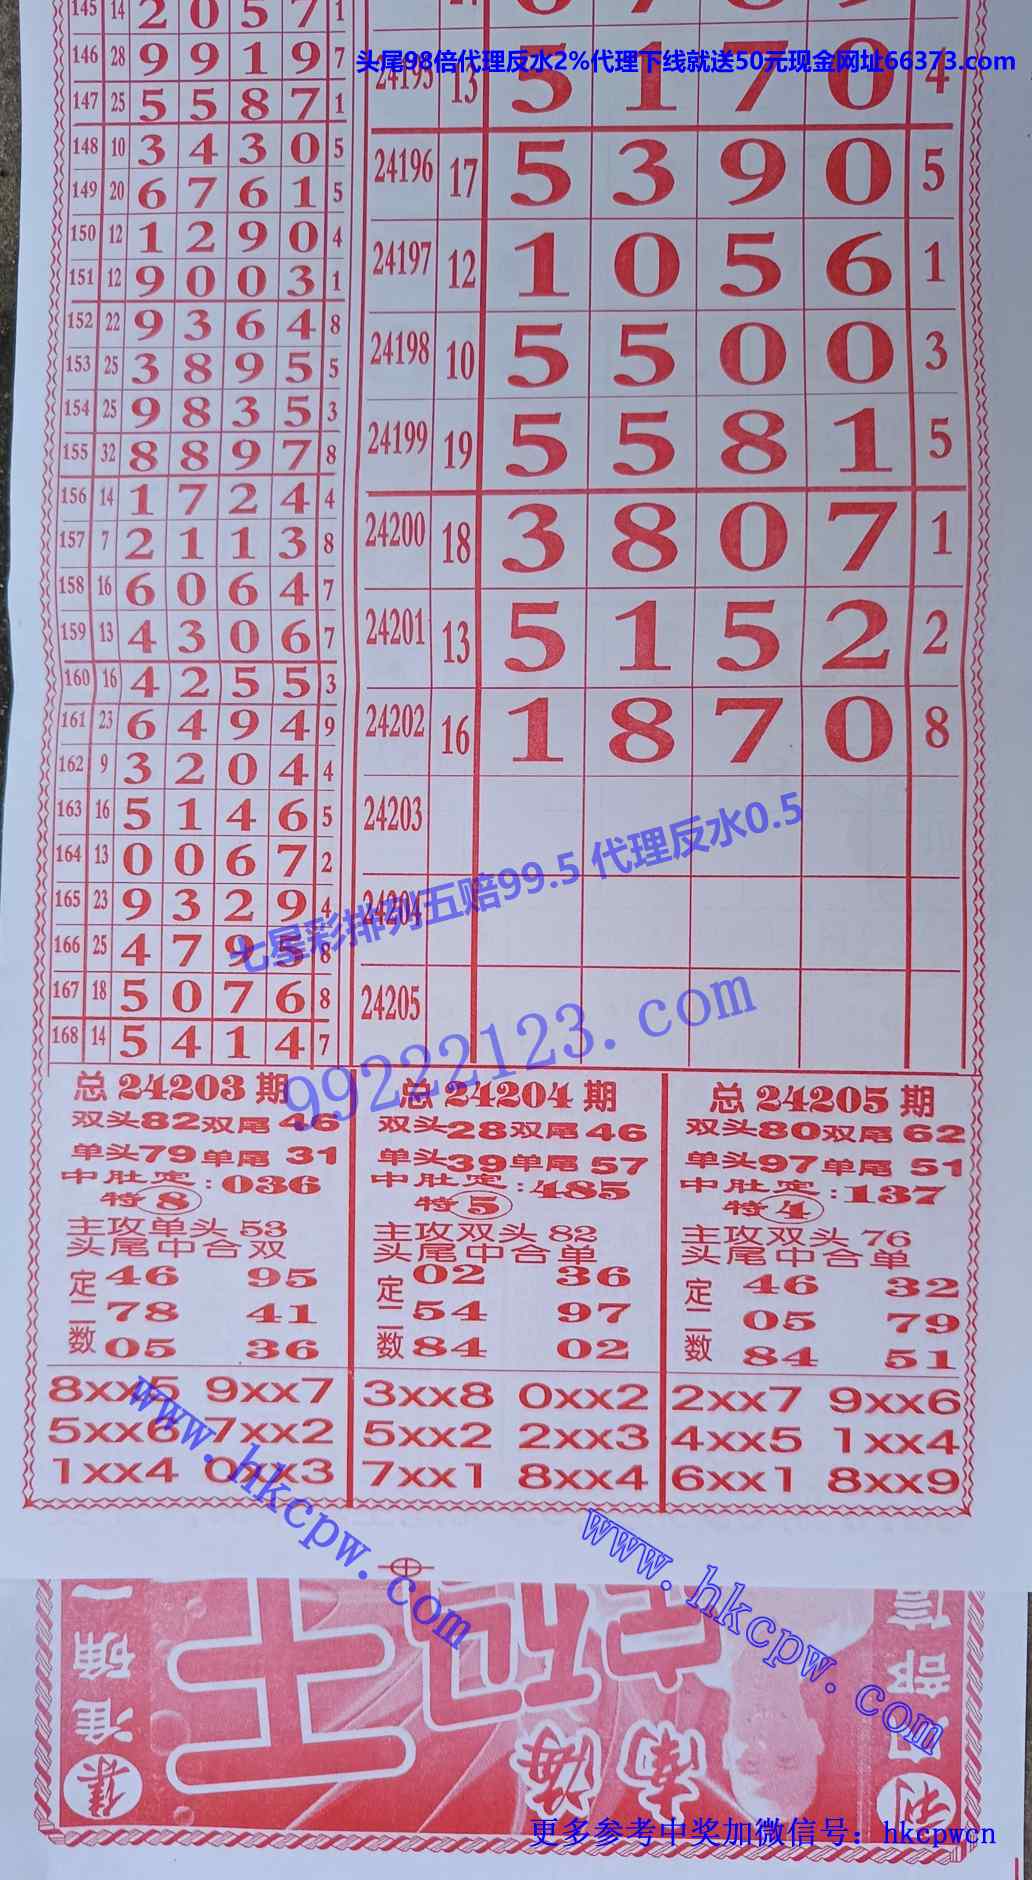 145 14 2 0 5 7 1
146 28 9 9 1 9 7
147 25 5 5 8 7 1
148 10 3 4 3 0 5
149 20 6 7 6 1 5
150 12 1 2 9 0 4
151 12 9 0 0 3 1
152 22 9 3 6 4 8
153 25 3 8 9 5 5
154 25 9 8 3 5 3
155 32 8 8 9 7 8
156 14 1 7 2 4 4
157 7 2 1 1 3 8
158 16 6 0 6 4 7
159 13 4 3 0 6 7
160 16 4 2 5 5 3
161 23 6 4 9 4 9
162 9 3 2 0 4 4
163 16 5 1 4 6 5
164 13 0 0 6 7 2
165 23 9 3 2 9 4
166 25 4 7 9 5 8
167 18 5 0 7 6 8
168 14 5 4 1 4 7
头尾98倍代理反水2%代理下线就送50元现金网址66373.com
24195 13 5 1 7 0 4
24196 17 5 3 9 0 5
24197 12 1 0 5 6 1
24198 10 5 5 0 0 3
24199 19 5 5 8 1 5
24200 18 3 8 0 7 1
24201 13 5 1 5 2 2
24202 16 1 8 7 0 8
24203
24204
24205
七星彩排列五赔99.5 代理反水0.5
99222123.com
总24203期
双头82双尾46
单头79单尾31
中肚定:036
特8
主攻单头53
头尾中合双
定二数
46 95
78 41
05 36
8xx5 9xx7
5xx6 7xx2
1xx4 0xx3
总24204期
双头28双尾46
单头39单尾57
中肚定:485
特5
主攻双头82
头尾中合单
定二数
02 36
54 97
84 02
3xx8 0xx2
5xx2 2xx3
7xx1 8xx4
总24205期
双头80双尾62
单头97单尾51
中肚定:137
特4
主攻双头76
头尾中合单
定二数
46 32
05 79
84 51
2xx7 9xx6
4xx5 1xx4
6xx1 8xx9
www.hkcpw.com
www.hkcpw.com
海南
准确一
更多参考中奖加微信号：hkcpwcn